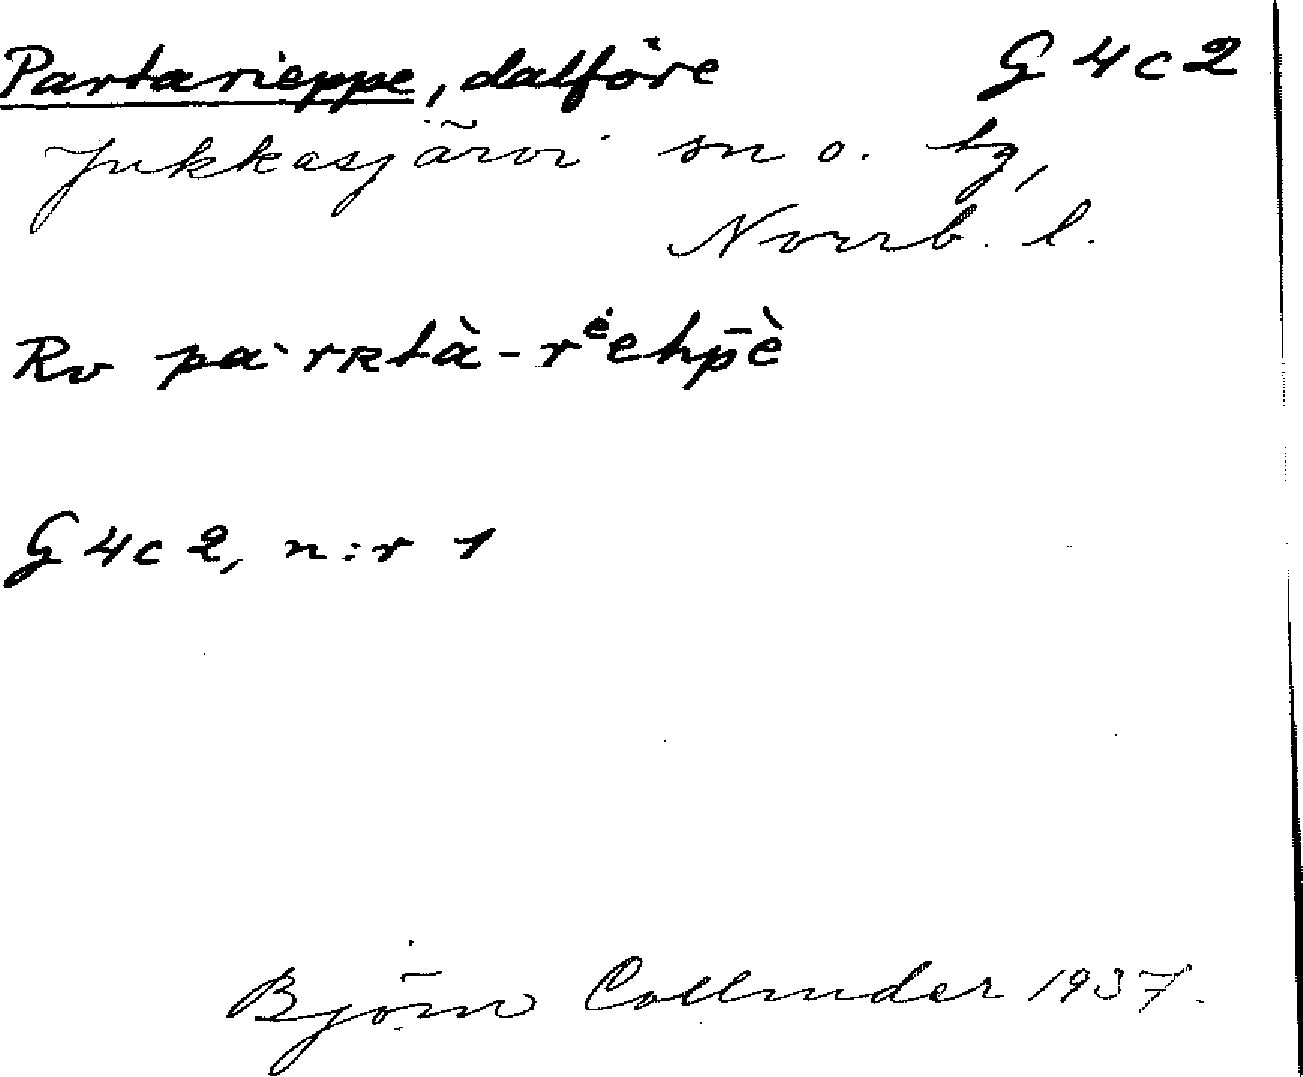 Partarieppe, dalföre G 4 c 2
Jukkasjärvi sn o. tg,
Norrb. l.
Rv pa·rʀtà-rėehp̄è
G 4 c 2, n:r 1
Björn Collinder 1937.